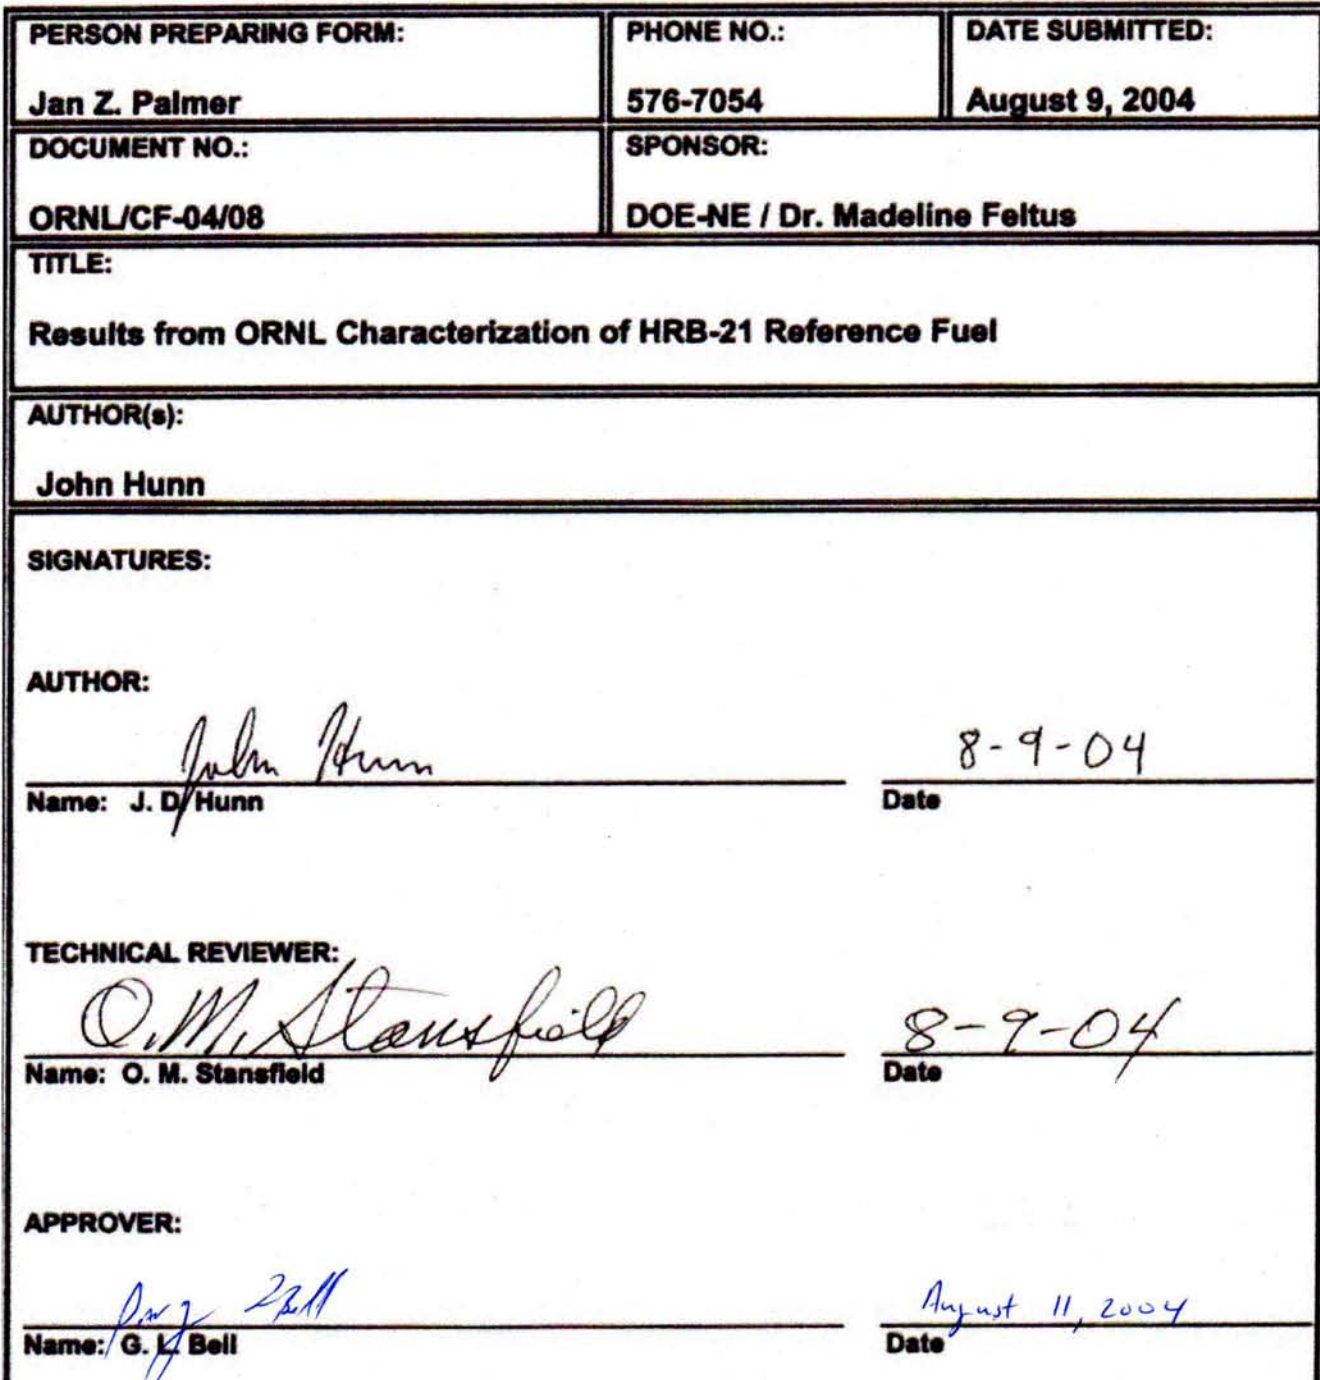 PERSON PREPARING FORM:
Jan Z. Palmer
PHONE NO.:
576-7054
DATE SUBMITTED:
August 9, 2004
DOCUMENT NO.:
ORNL/CF-04/08
SPONSOR:
DOE-NE / Dr. Madeline Feltus
TITLE:
Results from ORNL Characterization of HRB-21 Reference Fuel
AUTHOR(s):
John Hunn
SIGNATURES:
AUTHOR:
John Hunn
8-9-04
Name: J. D. Hunn
Date
TECHNICAL REVIEWER:
O.M. Stansfield
8-9-04
Name: O. M. Stansfield
Date
APPROVER:
August 11, 2004
Name: G. L. Bell
Date